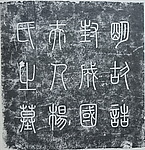 明故誥
封成國
夫人楊
氏之墓